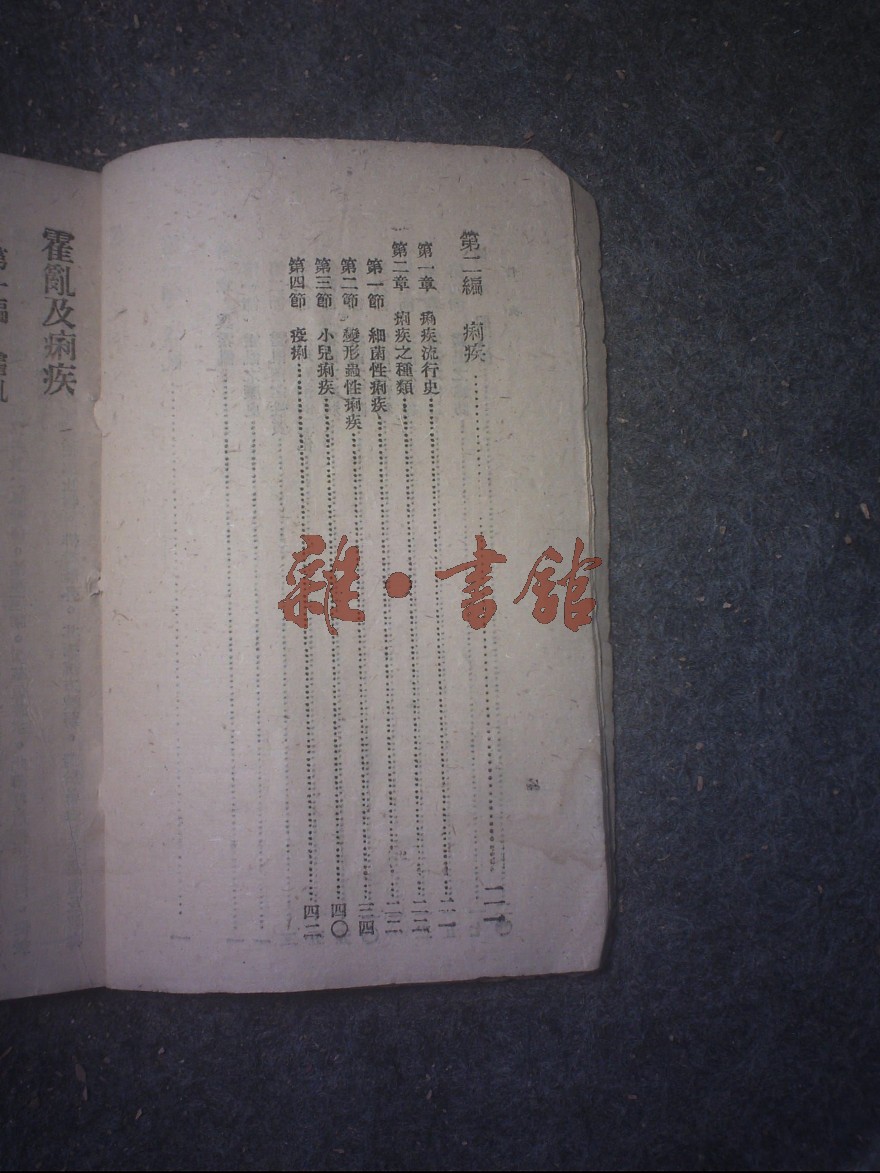 第二編 痢疾……二一
第一章 痢疾流行史……二一
第二章 痢疾之種類……二二
第一節 細菌性痢疾……二二
第二節 變形蟲性痢疾……三四
第三節 小兒痢疾……四〇
第四節 疫痢……四二
霍亂及痢疾
第一編 霍亂
雜·書館